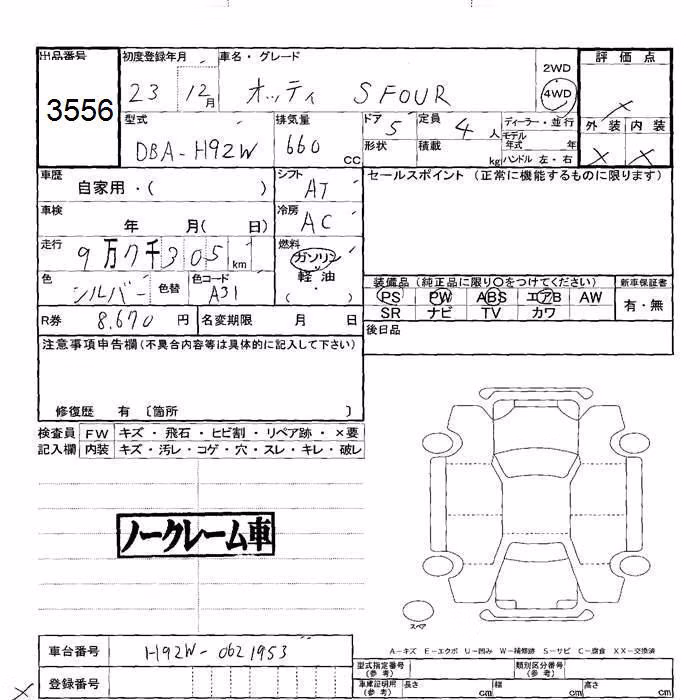 出品番号 初度登録年月 車名・グレード 2WD 評価点
3556 23 12月 オッティ S FOUR 4WD ×
型式 排気量 ドア 5 定員 4 人 ディーラー・並行 外装 内装
DBA-H92W 660 cc 形状 積載 kg モデル年式 年 × ×
ハンドル 左・右
車歴 自家用・( ) シフト AT セールスポイント (正常に機能するものに限ります)
車検 年 月( 日) 冷房 AC
走行 9万7千305km 燃料 ガソリン
軽・油
( ・ )
色 シルバー 色替 色コード A31 装備品 (純正品に限り○をつけてください) 新車保証書
PS PW ABS エアB AW 有・無
SR ナビ TV カワ
R券 8,670 円 名変期限 月 日 後日品
注意事項申告欄(不具合内容等は具体的に記入して下さい)
修復歴 有 〔箇所 〕
検査員 FW キズ・飛石・ヒビ割・リペア跡・×要
記入欄 内装 キズ・汚レ・コゲ・穴・スレ・キレ・破レ
ノークレーム車
スペア
A-キズ E-エクボ U-凹み W-補修跡 S-サビ C-腐食 XX-交換済
車台番号 H92W-0621953 型式指定番号(参考) 類別区分番号(参考)
× 登録番号 車庫証明用(参考) 長さ cm 幅 cm 高さ cm